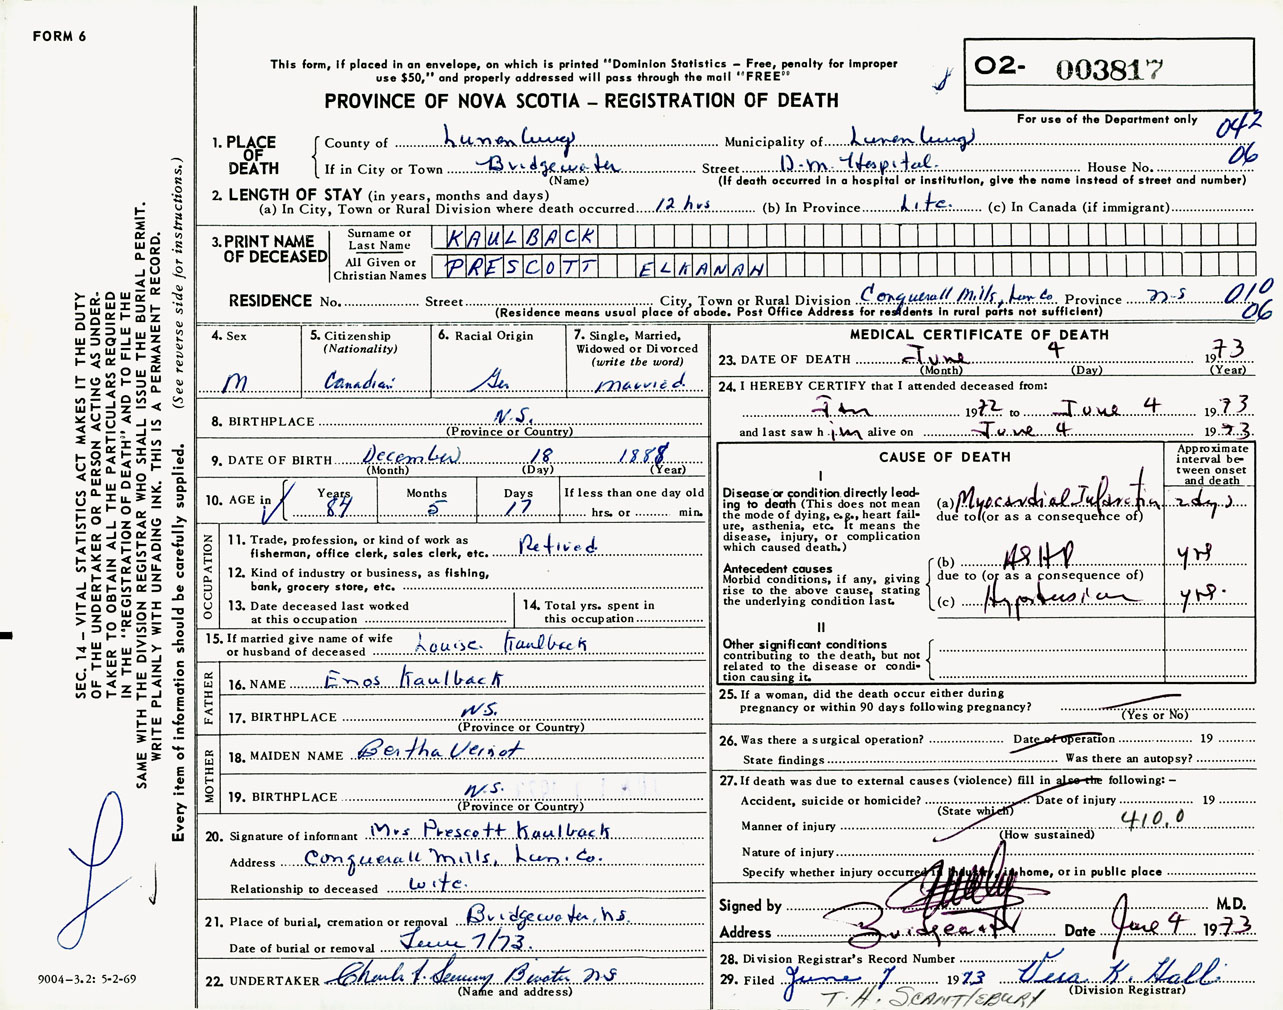 FORM 6
This form, if placed in an envelope, on which is printed "Dominion Statistics – Free, penalty for improper
use $50," and properly addressed will pass through the mail "FREE"
PROVINCE OF NOVA SCOTIA – REGISTRATION OF DEATH
O2- 003817
For use of the Department only
042
06
1. PLACE OF DEATH
County of Lunenburg Municipality of Lunenburg
If in City or Town Bridgewater Street D.M. Hospital House No.
(Name) (If death occurred in a hospital or institution, give the name instead of street and number)
2. LENGTH OF STAY (in years, months and days)
(a) In City, Town or Rural Division where death occurred 12 hrs (b) In Province Life. (c) In Canada (if immigrant)
3. PRINT NAME OF DECEASED
Surname or Last Name KAULBACK
All Given or Christian Names PRESCOTT ELKANAH
RESIDENCE No. Street City, Town or Rural Division Conquerall Mills, Lun Co Province N.S 010
(Residence means usual place of abode. Post Office Address for residents in rural parts not sufficient) 06
4. Sex
M
5. Citizenship
(Nationality)
Canadian
6. Racial Origin
Ger
7. Single, Married,
Widowed or Divorced
(write the word)
married
8. BIRTHPLACE N.S.
(Province or Country)
9. DATE OF BIRTH December 18 1888
(Month) (Day) (Year)
10. AGE in Years Months Days If less than one day old
84 5 17 hrs. or min.
OCCUPATION
11. Trade, profession, or kind of work as
fisherman, office clerk, sales clerk, etc. Retired
12. Kind of industry or business, as fishing,
bank, grocery store, etc.
13. Date deceased last worked
at this occupation
14. Total yrs. spent in
this occupation
15. If married give name of wife
or husband of deceased Louise Kaulback
FATHER
16. NAME Enos Kaulback
17. BIRTHPLACE N.S.
(Province or Country)
MOTHER
18. MAIDEN NAME Bertha Veinot
19. BIRTHPLACE N.S.
(Province or Country)
20. Signature of informant Mrs Prescott Kaulback
Address Conquerall Mills, Lun. Co.
Relationship to deceased wife.
21. Place of burial, cremation or removal Bridgewater, N.S.
Date of burial or removal June 7/73.
22. UNDERTAKER NS
(Name and address)
MEDICAL CERTIFICATE OF DEATH
23. DATE OF DEATH June 4 1973
(Month) (Day) (Year)
24. I HEREBY CERTIFY that I attended deceased from:
Jan 1972 to June 4 1973
and last saw him alive on June 4 1973.
CAUSE OF DEATH
Approximate
interval be-
tween onset
and death
I
Disease or condition directly lead-
ing to death (This does not mean
the mode of dying, e.g., heart fail-
ure, asthenia, etc. It means the
disease, injury, or complication
which caused death.)
(a) Myocardial Infarction 2 days
due to (or as a consequence of)
Antecedent causes
Morbid conditions, if any, giving
rise to the above cause, stating
the underlying condition last.
(b) ASHD yrs
due to (or as a consequence of)
(c) Hypertension yrs.
II
Other significant conditions
contributing to the death, but not
related to the disease or condi-
tion causing it.
25. If a woman, did the death occur either during
pregnancy or within 90 days following pregnancy?
(Yes or No)
26. Was there a surgical operation? Date of operation 19
State findings Was there an autopsy?
27. If death was due to external causes (violence) fill in also the following: –
Accident, suicide or homicide? Date of injury 19
(State which)
Manner of injury 410.0
(How sustained)
Nature of injury
Specify whether injury occurred in industry, in home, or in public place
Signed by M.D.
Address Bridgewater Date June 4 1973
28. Division Registrar's Record Number
29. Filed June 7 1973 Vera K. Hall
(Division Registrar)
T. H. SCANTLEBURY
SEC. 14 – VITAL STATISTICS ACT MAKES IT THE DUTY
OF THE UNDERTAKER OR PERSON ACTING AS UNDER-
TAKER TO OBTAIN ALL THE PARTICULARS REQUIRED
IN THE "REGISTRATION OF DEATH" AND TO FILE THE
SAME WITH THE DIVISION REGISTRAR WHO SHALL ISSUE THE BURIAL PERMIT.
WRITE PLAINLY WITH UNFADING INK. THIS IS A PERMANENT RECORD.
Every item of information should be carefully supplied. (See reverse side for instructions.)
9004-3.2: 5-2-69